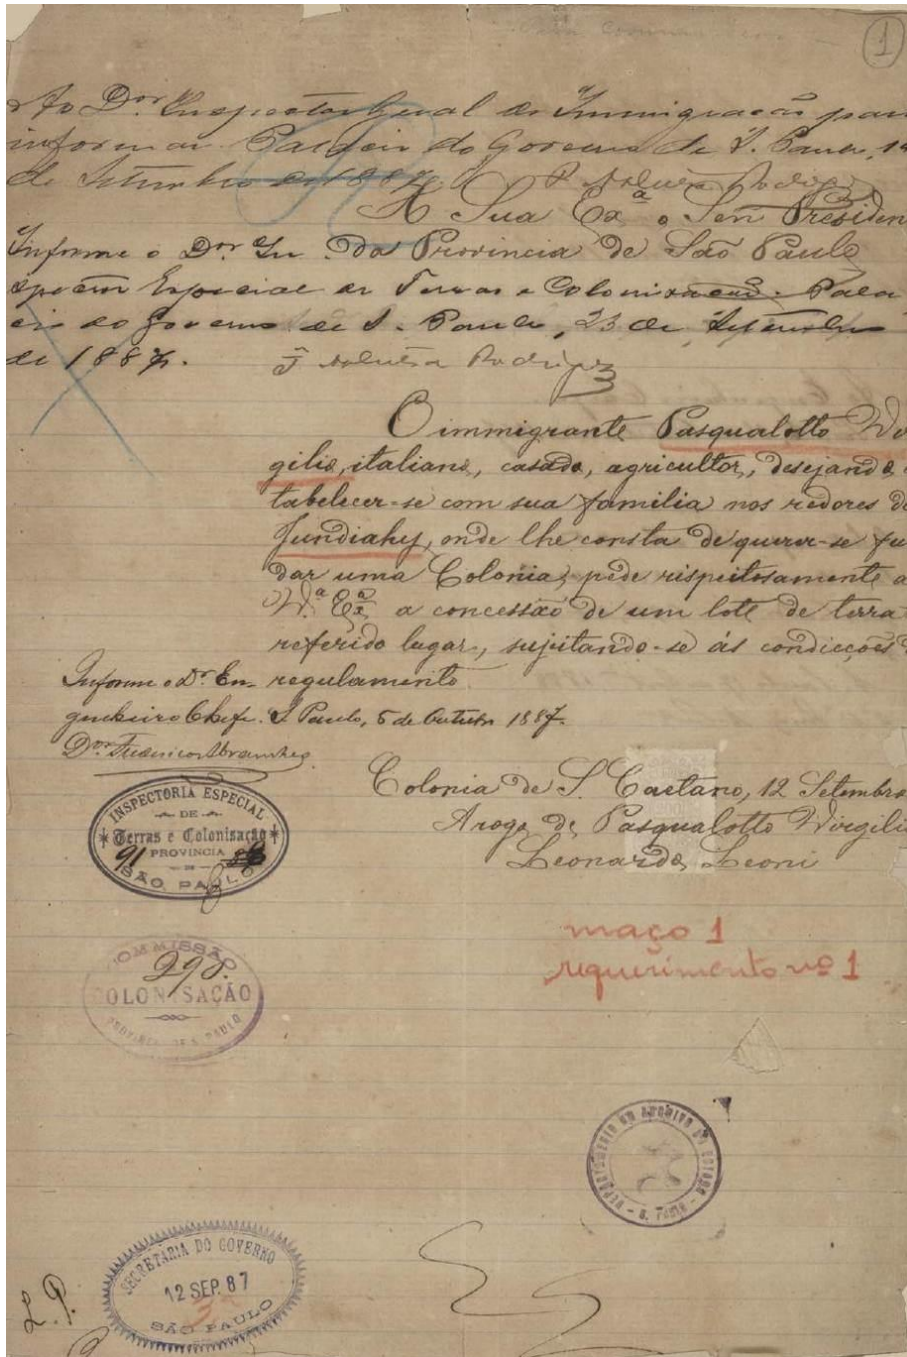 1
Ao Dor Inspector Geral de Immigração para
informar. Palacio do Governo de S. Paulo, 14
de Setembro de 1887
A Sua Exa o Senr Presiden
Informe o Dor In da Provincia de São Paulo
spector Especial de Terras e Colonização. Pala
cio do Governo de S. Paulo, 23 de Setembro
de 1887. Rodrigues
O immigrante Pasqualotto Vir
gilio, italiano, casado, agricultor, desejando
tabelecer-se com sua familia nos redores de
Jundiahy, onde lhe consta de querer-se fu
dar uma Colonia, pede rispeitosamente a
Va Exa a concessão de um lote de terra
referido lugar, sujeitando-se ás condicções
regulamento.
Informe o Dr. En-
genheiro Chefe. S. Paulo, 5 de Outubro 1887.
Colonia de S. Caetano, 12 Setembro
Arogo de Pasqualotto Virgilio
Leonardo Leoni
INSPECTORIA ESPECIAL
DE
Terras e Colonisação
91 PROVINCIA
SÃO PAULO
maço 1
requerimento nº 1
COMMISSÃO
290.
COLONISAÇÃO
PROVINCIA DE S. PAULO
DEPARTAMENTO DO ARCHIVO DO ESTADO
S. PAULO
SECRETARIA DO GOVERNO
12 SEP. 87
SÃO PAULO
L. P.